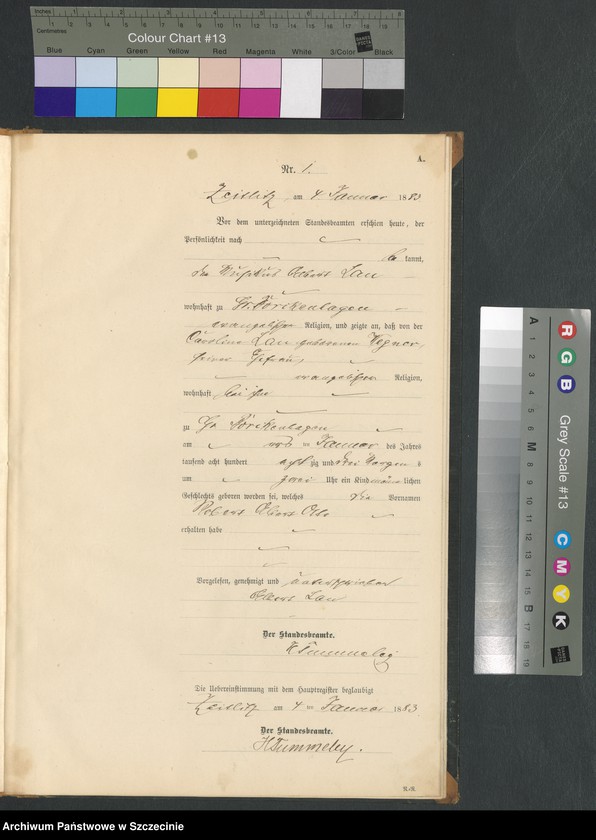 Inches 1 2 3 4 5 6 7 8
Centimetres 1 2 3 4 5 6 7 8 9 10 11 12 13 14 15 16 17 18 19
Colour Chart #13
Blue Cyan Green Yellow Red Magenta White 3/Color Black
A.
Nr. 1.
Zeitlitz am 4 Januar 1883
Vor dem unterzeichneten Standesbeamten erschien heute, der
Persönlichkeit nach
kannt,
Albert Lau
wohnhaft zu Gr. Borckenhagen
evangelischer Religion, und zeigte an, daß von der
Caroline Lau geborenen Wegner,
seiner Ehefrau,
evangelischer Religion,
wohnhaft bei ihm
zu Gr Borckenhagen
am Januar des Jahres
tausend acht hundert achtzig und drei Morgens
um zwei Uhr ein Kind männlichen
Geschlechts geboren worden sei, welches die Vornamen
Robert Albert Otto
erhalten habe
Vorgelesen, genehmigt und unterschrieben
Albert Lau
Der Standesbeamte.
H Tummeley
Die Uebereinstimmung mit dem Hauptregister beglaubigt
Zeitlitz am 4 ten Januar 1883
Der Standesbeamte.
H Tummeley.
R G B
Grey Scale #13
C M Y K
A 1 2 3 4 5 6 M 8 9 10 11 12 13 14 15 B 17 18 19
Archiwum Państwowe w Szczecinie